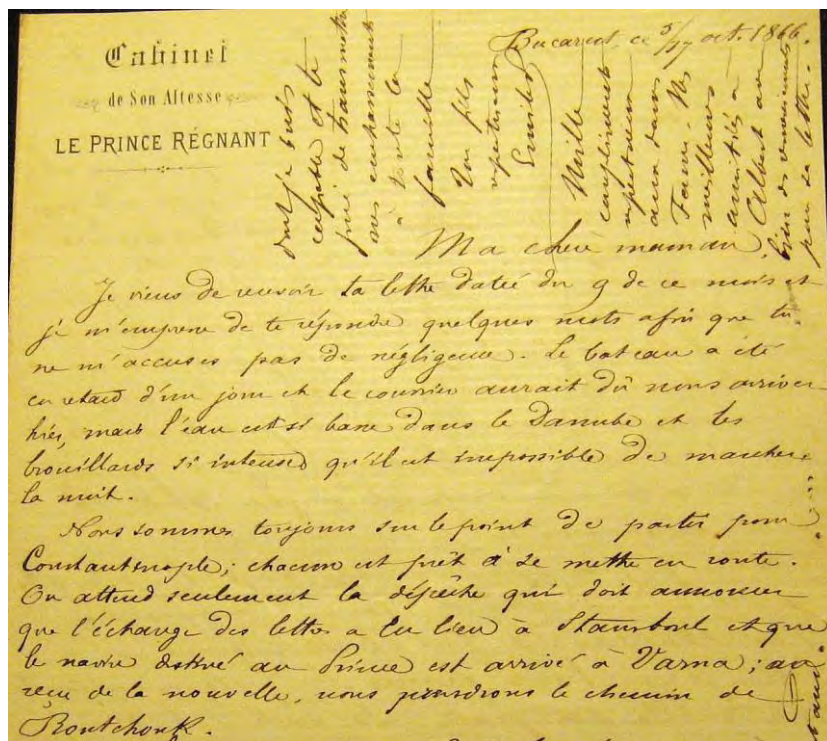 Cabinet
de Son Altesse
LE PRINCE RÉGNANT
Bucarest, ce 5/17 oct. 1866.
Ma chère maman,
Je viens de recevoir ta lettre datée du 9 de ce mois et
je m'empresse de te répondre quelques mots afin que tu
ne m'accuses pas de négligence. Le bateau a été
en retard d'un jour et le courrier aurait dû nous arriver
hier, mais l'eau est si basse dans le Danube et les
brouillards si intenses qu'il est impossible de marcher
la nuit.
Nous sommes toujours sur le point de partir pour
Constantinople; chacun est prêt à se mettre en route.
On attend seulement la dépêche qui doit annoncer
que l'échange des lettres a eu lieu à Stamboul et que
le navire destiné au Prince est arrivé à Varna; au
reçu de la nouvelle, nous prendrons le chemin de
Routchouk.
dont je suis
capable et te
prie de transmettre
mes embrassements
à toute la
famille
Ton fils
respectueux
Emile
Mille
compliments
respectueux
aux dames
Mes
meilleures
amitiés à
Albert avec
bien des remerciements
pour sa lettre.